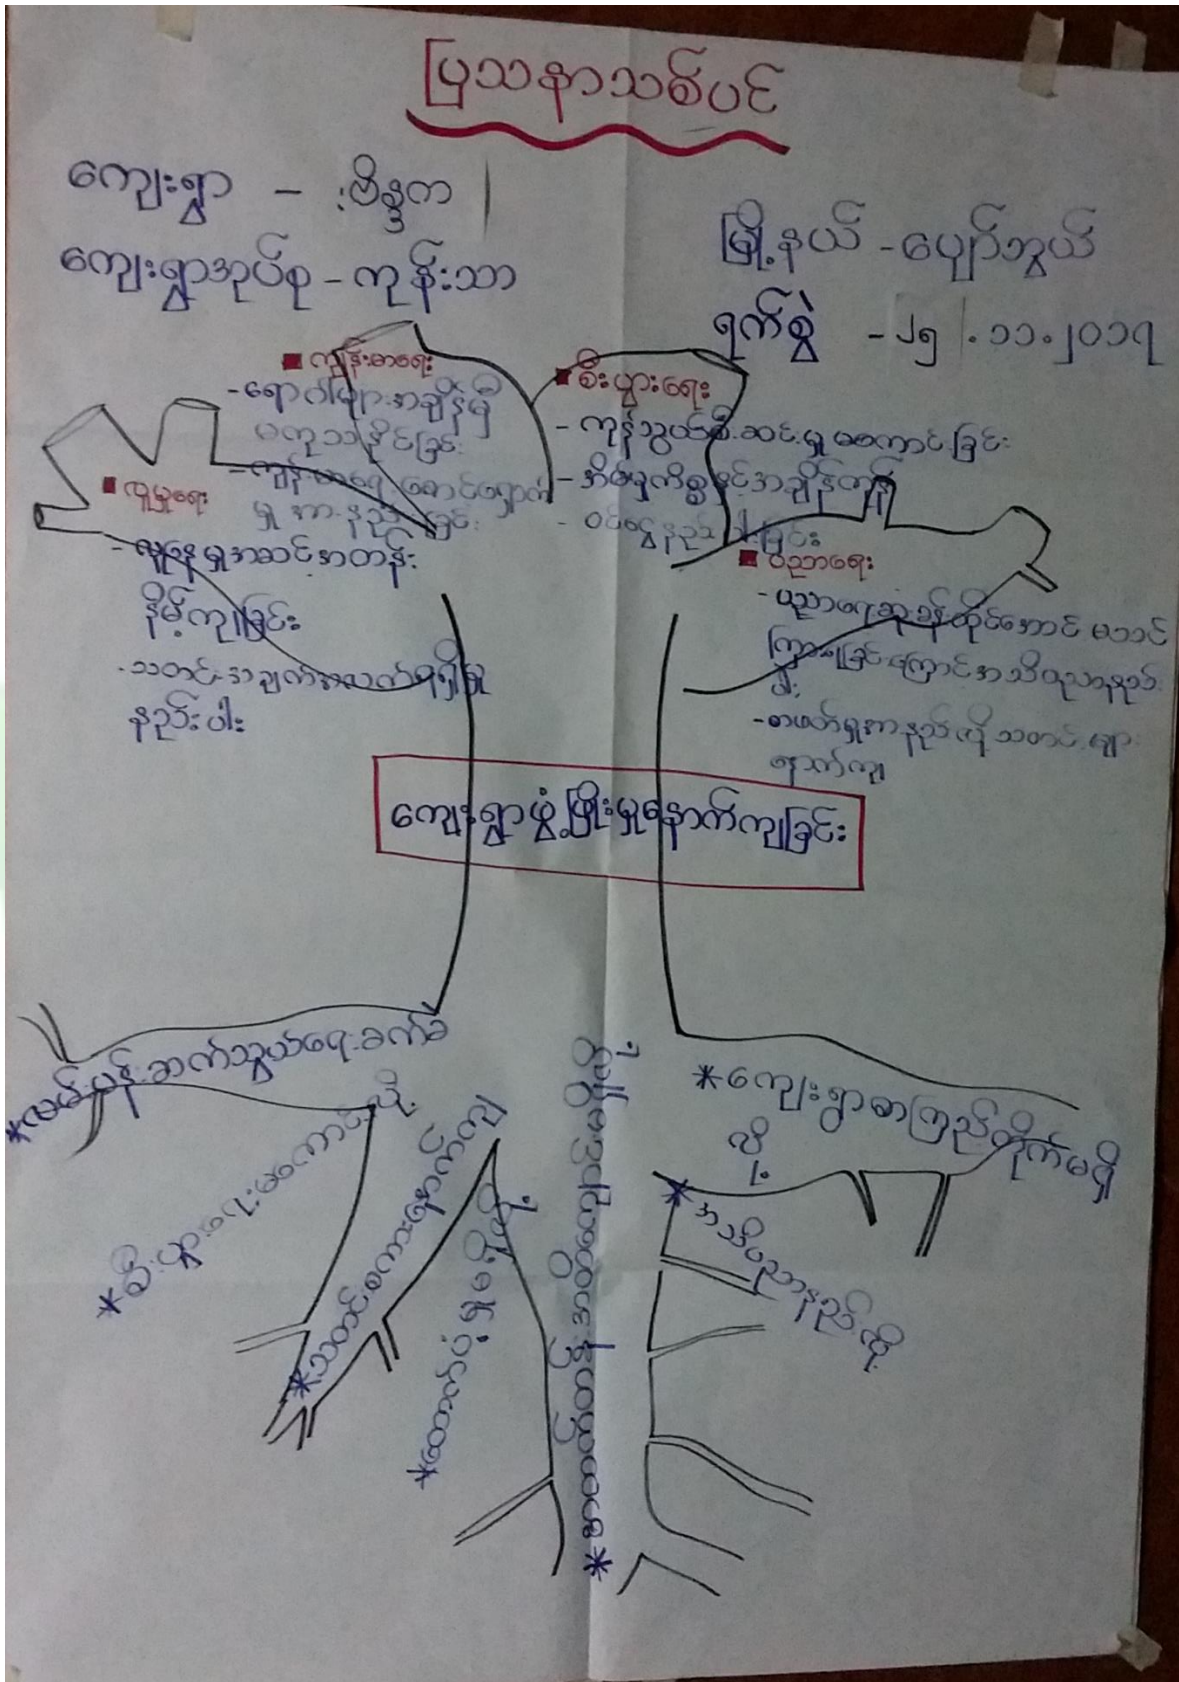 ပြသနာသစ်ပင်
ကျေးရွာ -
ကျေးရွာအုပ်စု - ကုန်းသာ
မြို့နယ် - ပျော်ဘွယ်
ရက်စွဲ - ၂၅.၁၁.၂၀၁၇
ကျန်းမာရေး
- ရောဂါများအချိန်မှီ
မကုသနိုင်ခြင်း
- ကျန်းမာရေးစောင့်ရှောက်
မှုအားနည်းခြင်း
စီးပွားရေး
- ကုန်သွယ်စီးဆင်းမှုမကောင်းခြင်း
- အိမ်မှုကိစ္စနှင့်အချိန်ကုန်
- ဝင်ငွေနည်းပါးခြင်း
လူမှုရေး
- လူနေမှုအဆင့်အတန်း
နိမ့်ကျခြင်း
- သတင်းအချက်အလက်ရရှိမှု
နည်းပါး
ပညာရေး
- ပညာရေးဆုံးခန်းတိုင်အောင် မသင်
ကြားရခြင်းကြောင့်အသိပညာနည်း
ပါး
- စာဖတ်မှုအားနည်းလို့ သတင်းများ
နောက်ကျ
ကျေးရွာဖွံ့ဖြိုးမှုနောက်ကျခြင်း
*လမ်းပန်းဆက်သွယ်ရေးခက်ခဲ
*စီးပွားရေးမကောင်းလို့
*သတင်းစကားနောက်ကျ
*ထောက်ပံ့မှုမရှိလို့
*ကျေးရွာစာကြည့်တိုက်မရှိ
လို့
*အသိပညာနည်းလို့